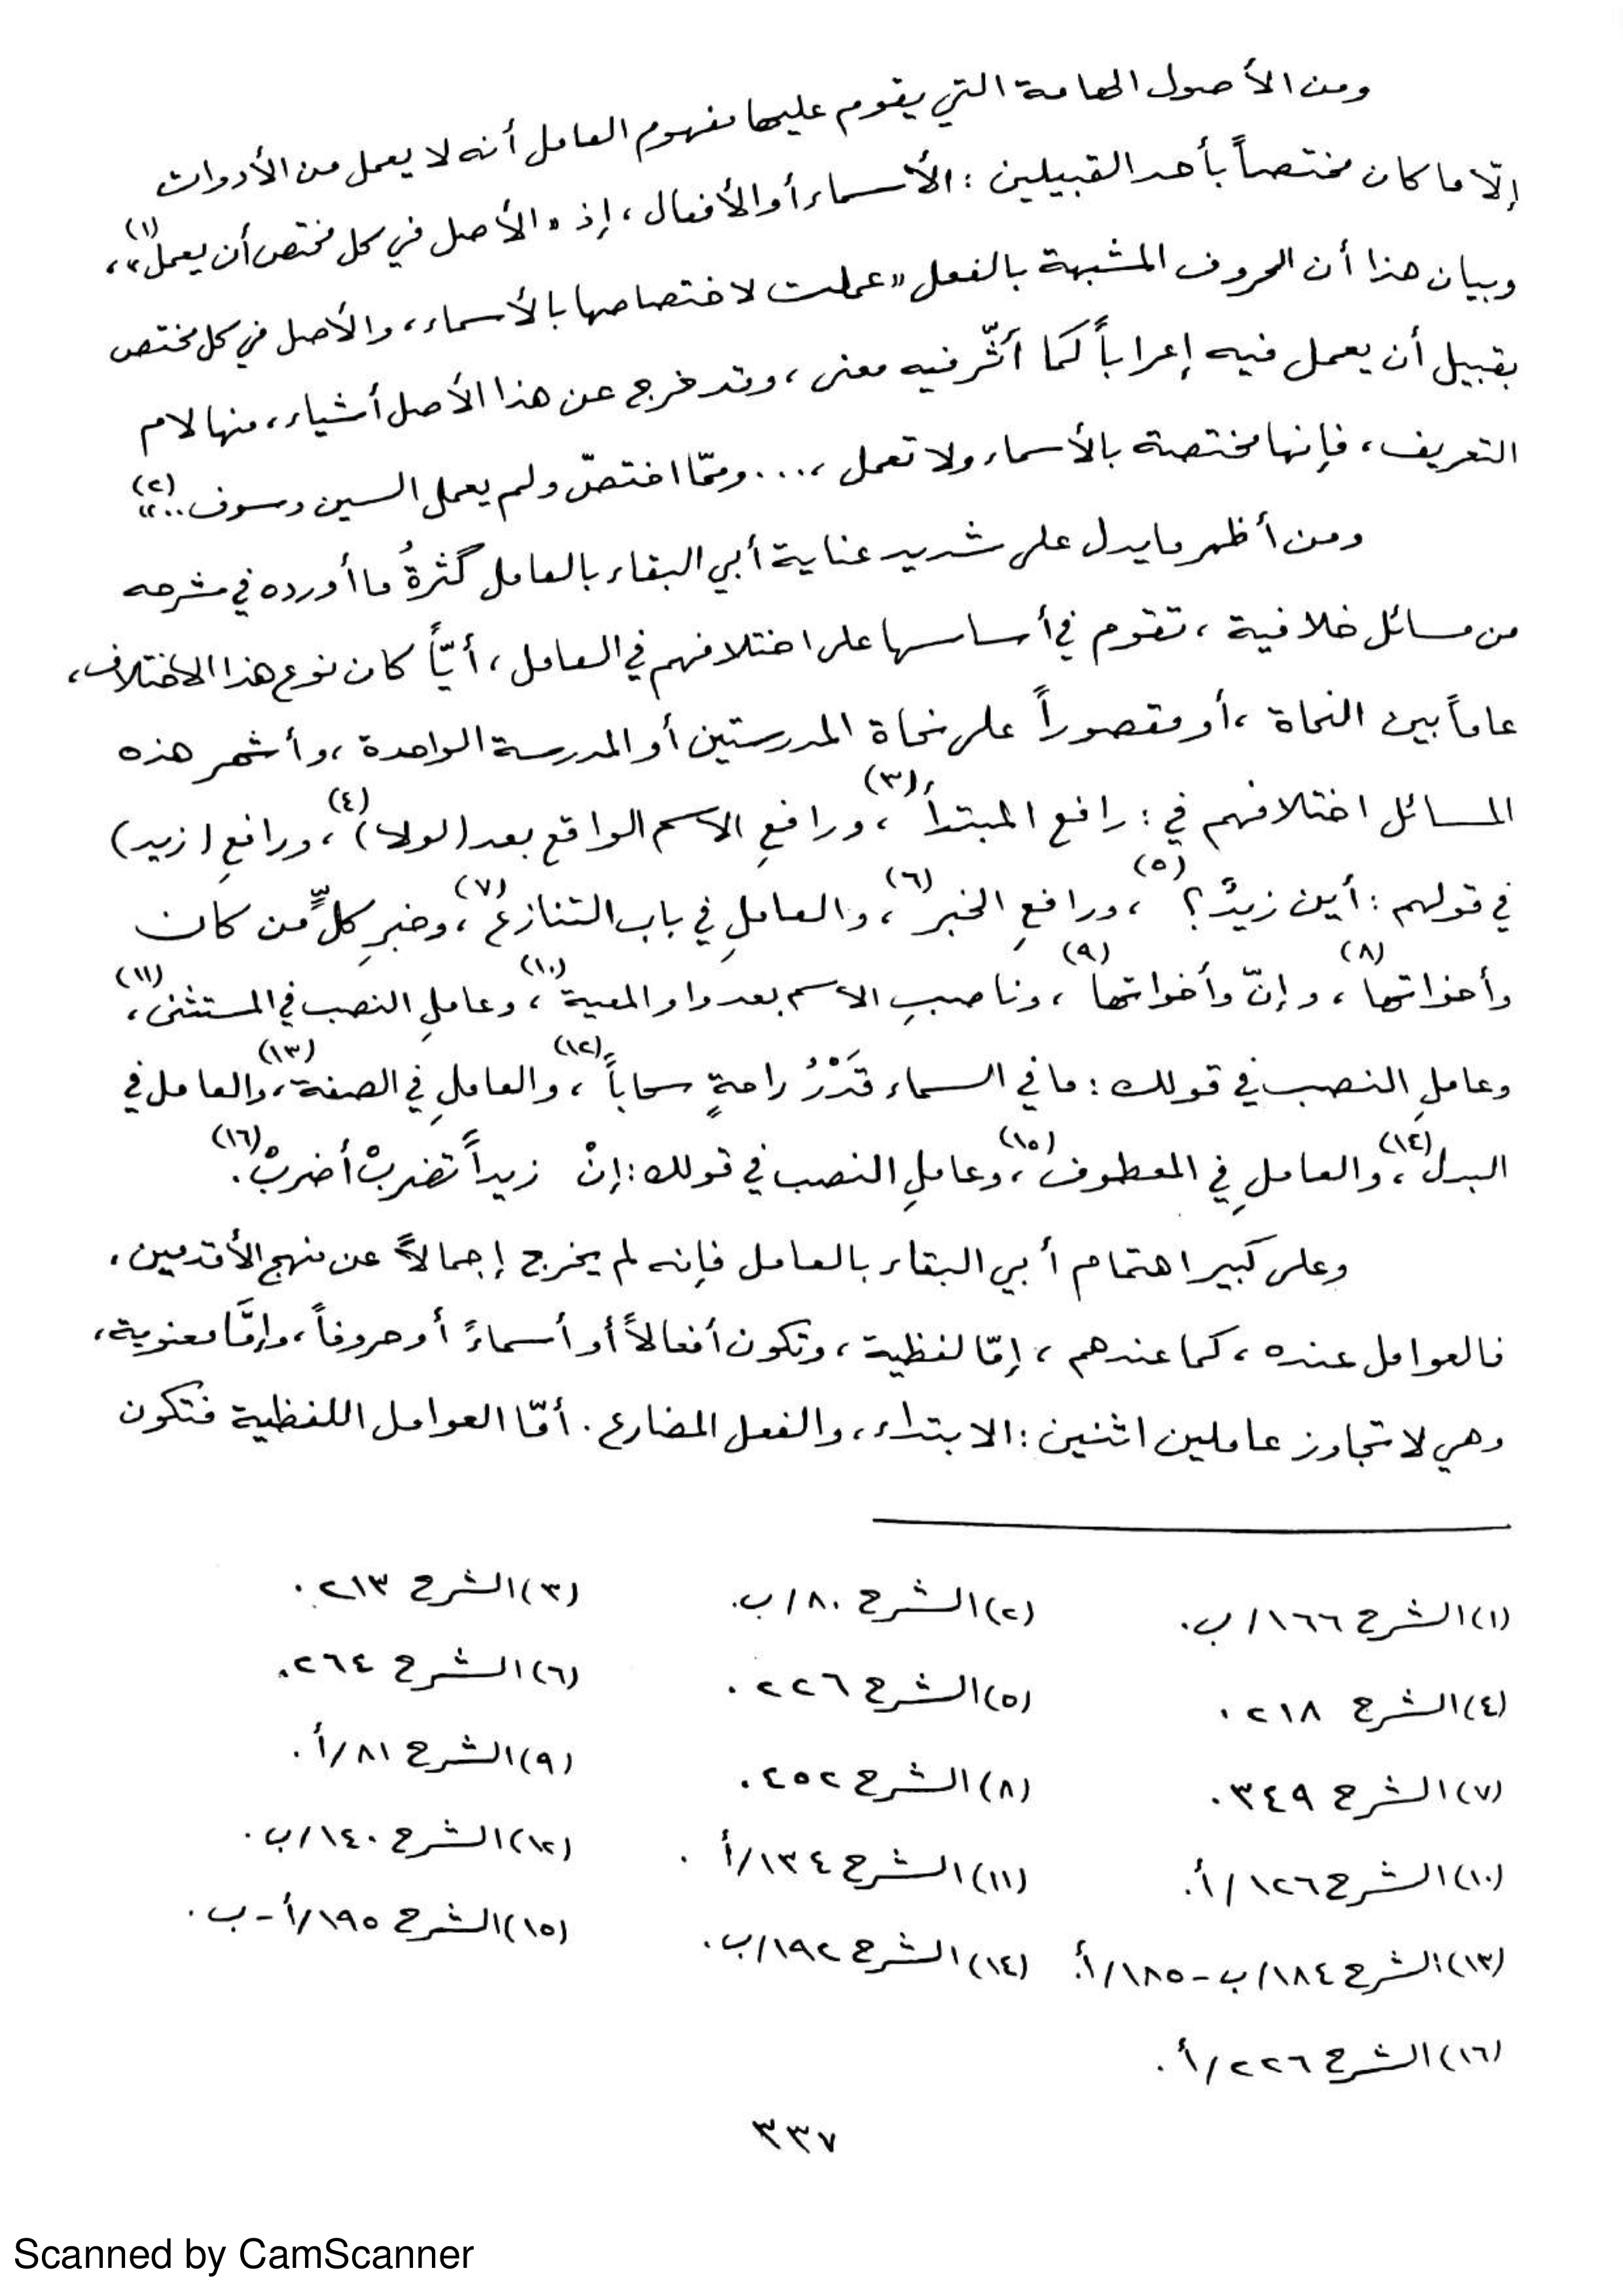 ومن الأصول الهامة التي يقوم عليها مفهوم العامل أنه لا يعمل من الأدوات
إلّا ما كان مختصاً بأحد القبيلين : الأسماء أو الأفعال ، إذ « الأصل في كل مختص أن يعمل »(١) ،
وبيان هذا أن الحروف المشبهة بالفعل « عملت لاختصاصها بالأسماء ، والأصل في كل مختص
بقبيل أن يعمل فيه إعراباً كما أثّر فيه معنى ، وقد خرج عن هذا الأصل أشياء ، منها لام
التعريف ، فإنها مختصة بالأسماء ولا تعمل ، ... وممّا اختصّ ولم يعمل السين وسوف .. »(٢)
ومن أظهر ما يدل على شديد عناية أبي البقاء بالعامل كثرةُ ما أورده في شرحه
من مسائل خلافية ، تقوم في أساسها على اختلافهم في العامل ، أيّاً كان نوع هذا الاختلاف ،
عاماً بين النحاة ، أو مقصوراً على نحاة المدرستين أو المدرسة الواحدة ، وأشهر هذه
المسائل اختلافهم في : رافع المبتدأ(٣) ، ورافعِ الاسم الواقع بعد (لولا)(٤) ، ورافعِ (زيد)
في قولهم : أين زيدٌ ؟(٥) ، ورافعِ الخبر(٦) ، والعاملِ في باب التنازع(٧) ، وخبرِ كلٍّ من كان
وأخواتها(٨) ، وإنّ وأخواتها(٩) ، وناصبِ الاسم بعد واو المعية(١٠) ، وعاملِ النصب في المستثنى(١١) ،
وعاملِ النصب في قولك : ما في السماء قَدْرُ راحةٍ سحاباً(١٢) ، والعاملِ في الصفة(١٣) ، والعامل في
البدل(١٤) ، والعاملِ في المعطوف(١٥) ، وعاملِ النصب في قولك : إنْ زيداً تضربْ أضربْ(١٦) .
وعلى كبير اهتمام أبي البقاء بالعامل فإنه لم يخرج إجمالاً عن منهج الأقدمين ،
فالعوامل عنده ، كما عندهم ، إمّا لفظية ، وتكون أفعالاً أو أسماءً أو حروفاً ، وإمَّا معنوية ،
وهي لا تجاوز عاملين اثنين : الابتداء ، والفعل المضارع . أمّا العوامل اللفظية فتكون
(١) الشرح ١٦٦/ب. (٢) الشرح ٨٠/ب. (٣) الشرح ٢١٣ .
(٤) الشرح ٢١٨ . (٥) الشرح ٢٢٦ . (٦) الشرح ٢٦٤ .
(٧) الشرح ٣٤٩ . (٨) الشرح ٤٥٢ . (٩) الشرح ٨١/أ .
(١٠) الشرح ١٢٦/أ. (١١) الشرح ١٣٤/أ . (١٢) الشرح ١٤٠/ب .
(١٣) الشرح ١٨٤/ب - ١٨٥/أ. (١٤) الشرح ١٩٢/ب . (١٥) الشرح ١٩٥/أ - ب .
(١٦) الشرح ٢٢٦/أ .
٣٣٧
Scanned by CamScanner